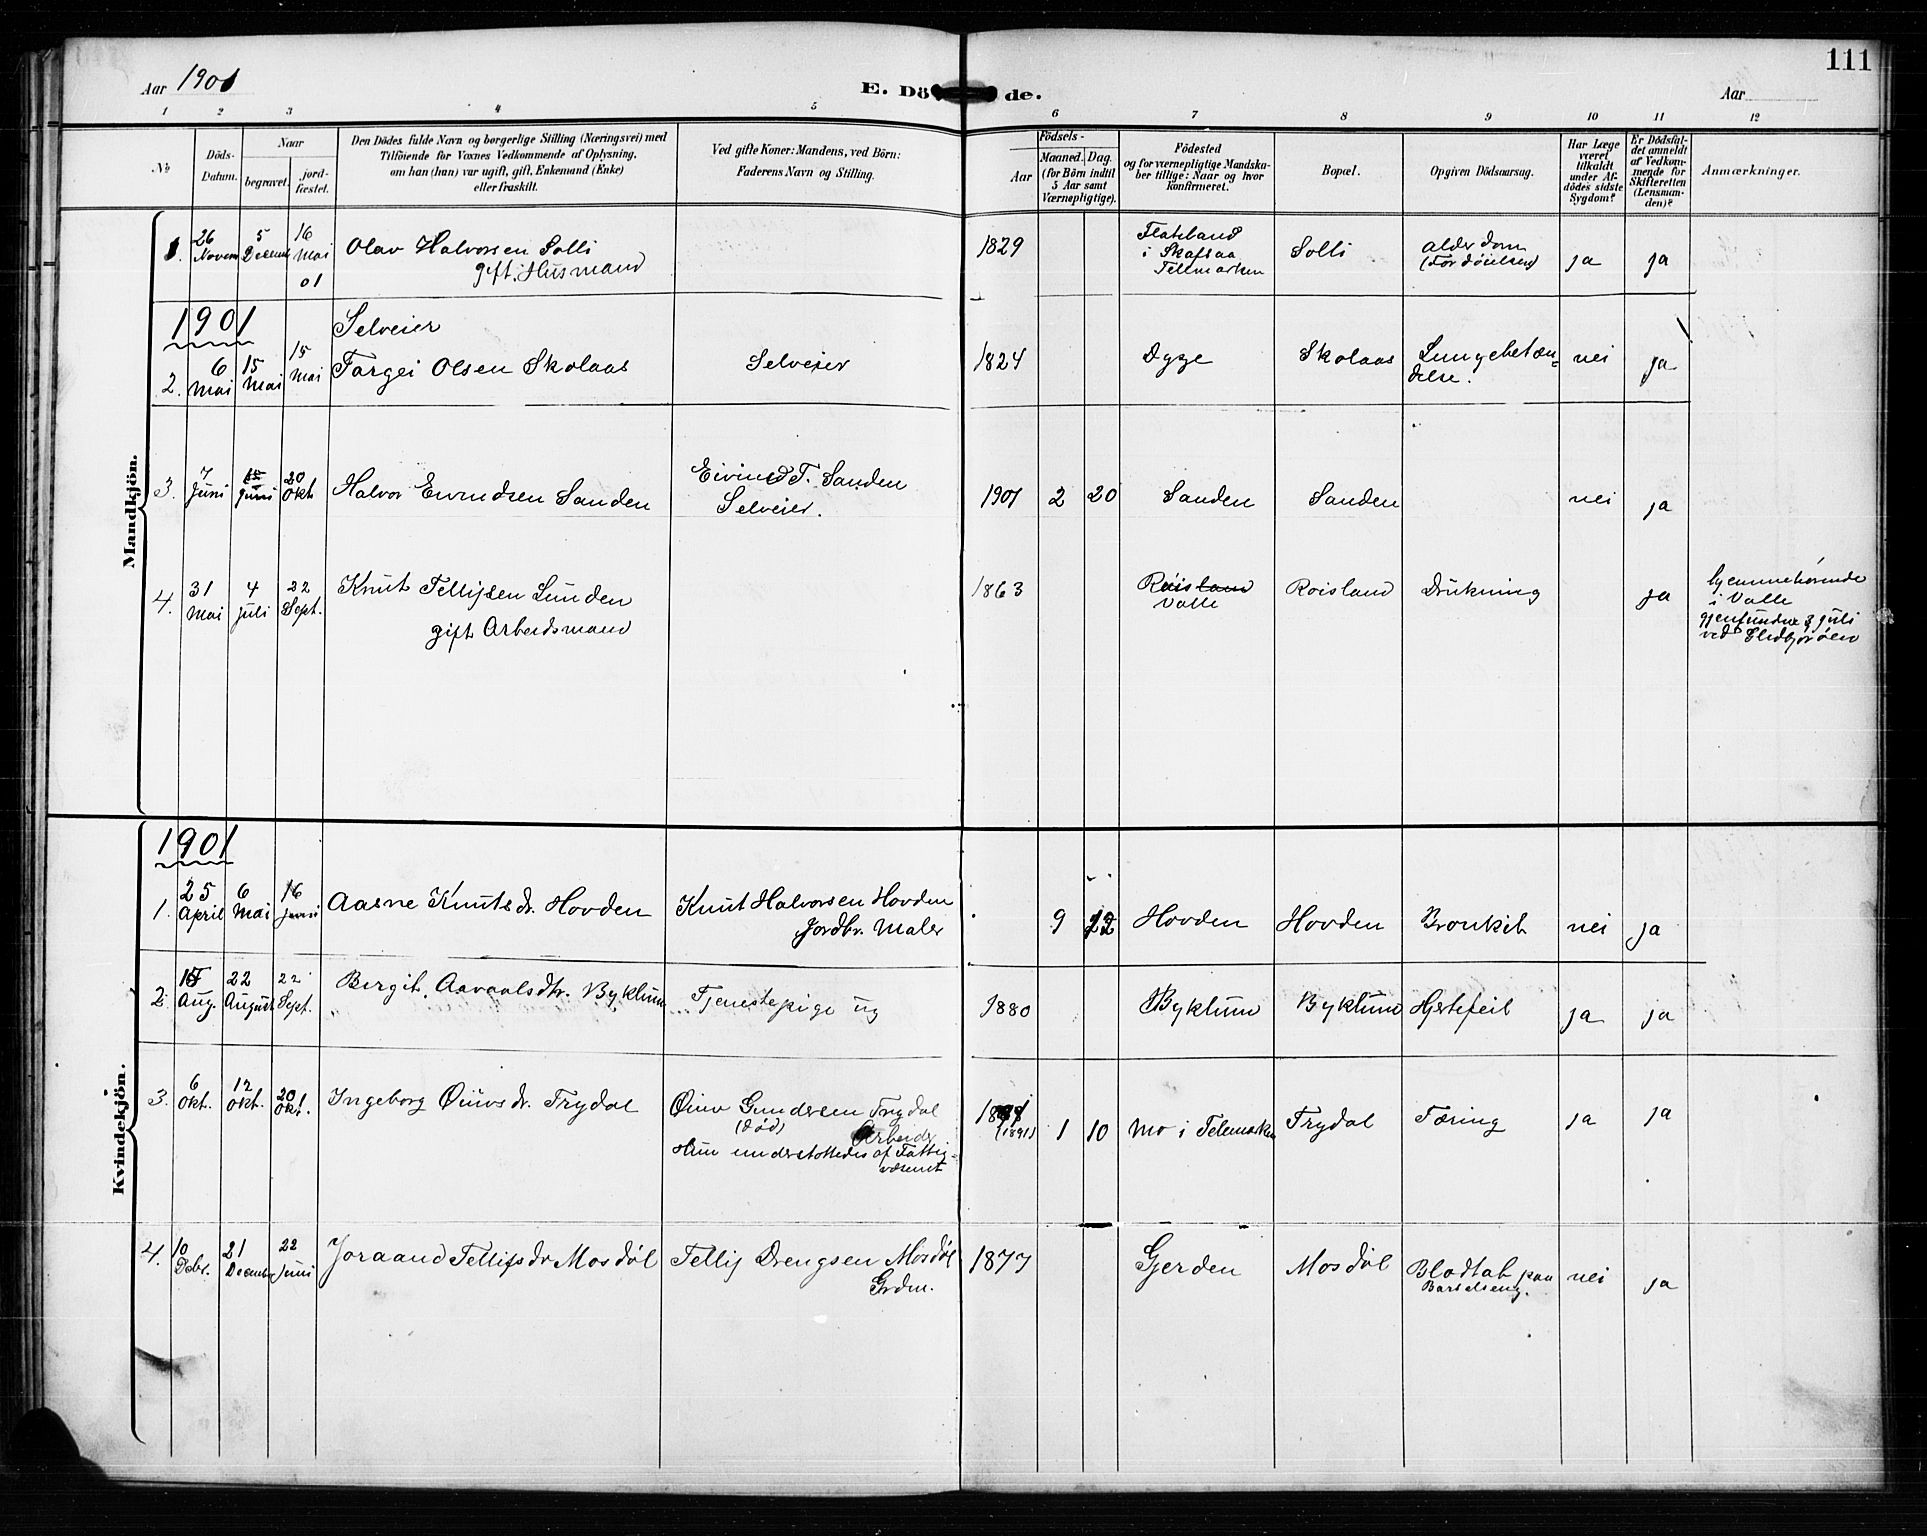 111
Aar 1901 E. Dö de. Aar
1 2 3 4 5 6 7 8 9 10 11 12
No
Döds-Datum.
Naar
begravet.
jord-fæstet.
Den Dödes fulde Navn og borgerlige Stilling (Næringsvei) med
Tilföiende for Voxnes Vedkommende af Oplysning,
om han (hun) var ugift, gift, Enkemand (Enke)
eller fraskilt.
Ved gifte Koner: Mandens, ved Börn:
Faderens Navn og Stilling.
Födsels-
Aar
Maaned. Dag.
(for Börn indtil
5 Aar samt
Værnepligtige).
Födested
og for værnepligtige Mandska-
ber tillige: Naar og hvor
konfirmeret.
Bopæl.
Opgiven Dödsaarsag.
Har Læge
været
tilkaldt
under Af-
dödes sidste
Sygdom?
Er Dödsfal-
det anmeldt
af Vedkom-
mende for
Skifteretten
(Lensman-
den)?
Anmærkninger.
Mandkjön.
1. 26 Novem 5 Decem 16 Mai 01 Olav Halvorsen Solli
gift. Husmand
1829 Flateland
i Skafsaa
Tellmarken
Solli Alderdom
ja ja
1901
Selveier
2. 6 Mai 15 Mai 15 Mai Targei Olsen Skolaas Selveier 1824 Dyge Skolaas Lungebetæn-
delse. nei ja
3. 7 Juni 15 Juni 20 Okt Halvor Eivindsen Sanden Eivind T. Sanden
Selveier.
1901 2 20 Sanden Sanden nei ja
4. 31 Mai 4 Juli 22 Sept. Knut Tellefsen Lunden
gift Arbeidsmand
1863 Roisland
Valle
Roisland Drukning ja hjemmehørende
i Valle
gjenfunden 3 juli
ved
Kvindekjön.
1901
1. 25 April 6 Mai 16 Juni Aasne Knutsdr. Hovden Knut Halvorsen Hovden
Jordbr. Maler
9 22 Hovden Hovden Bronkit nei ja
2. Aug. 22 August 22 Sept. Birgit Aavaalsdtr. Byklum Tjenestepige ug 1880 Byklum Byklum Hjertefeil ja ja
3. 6 Okt. 12 Okt. 20 Okt. Ingeborg Ouvsdr. Trydal Ouv Gundersen Trydal
(død) Arbeids
Hun understøttedes af Fattig-
væsenet
(1891) 1 10 Mo i Telemarken Trydal Tæring ja ja
4. 10 Debr. 21 Decemb 22 Juni Joraand Tellefsdr Mosdøl Tellef Drengsen Mosdøl
Grdm.
1877 Gjerden Mosdøl Blodtab paa
Barselseng.
nei ja